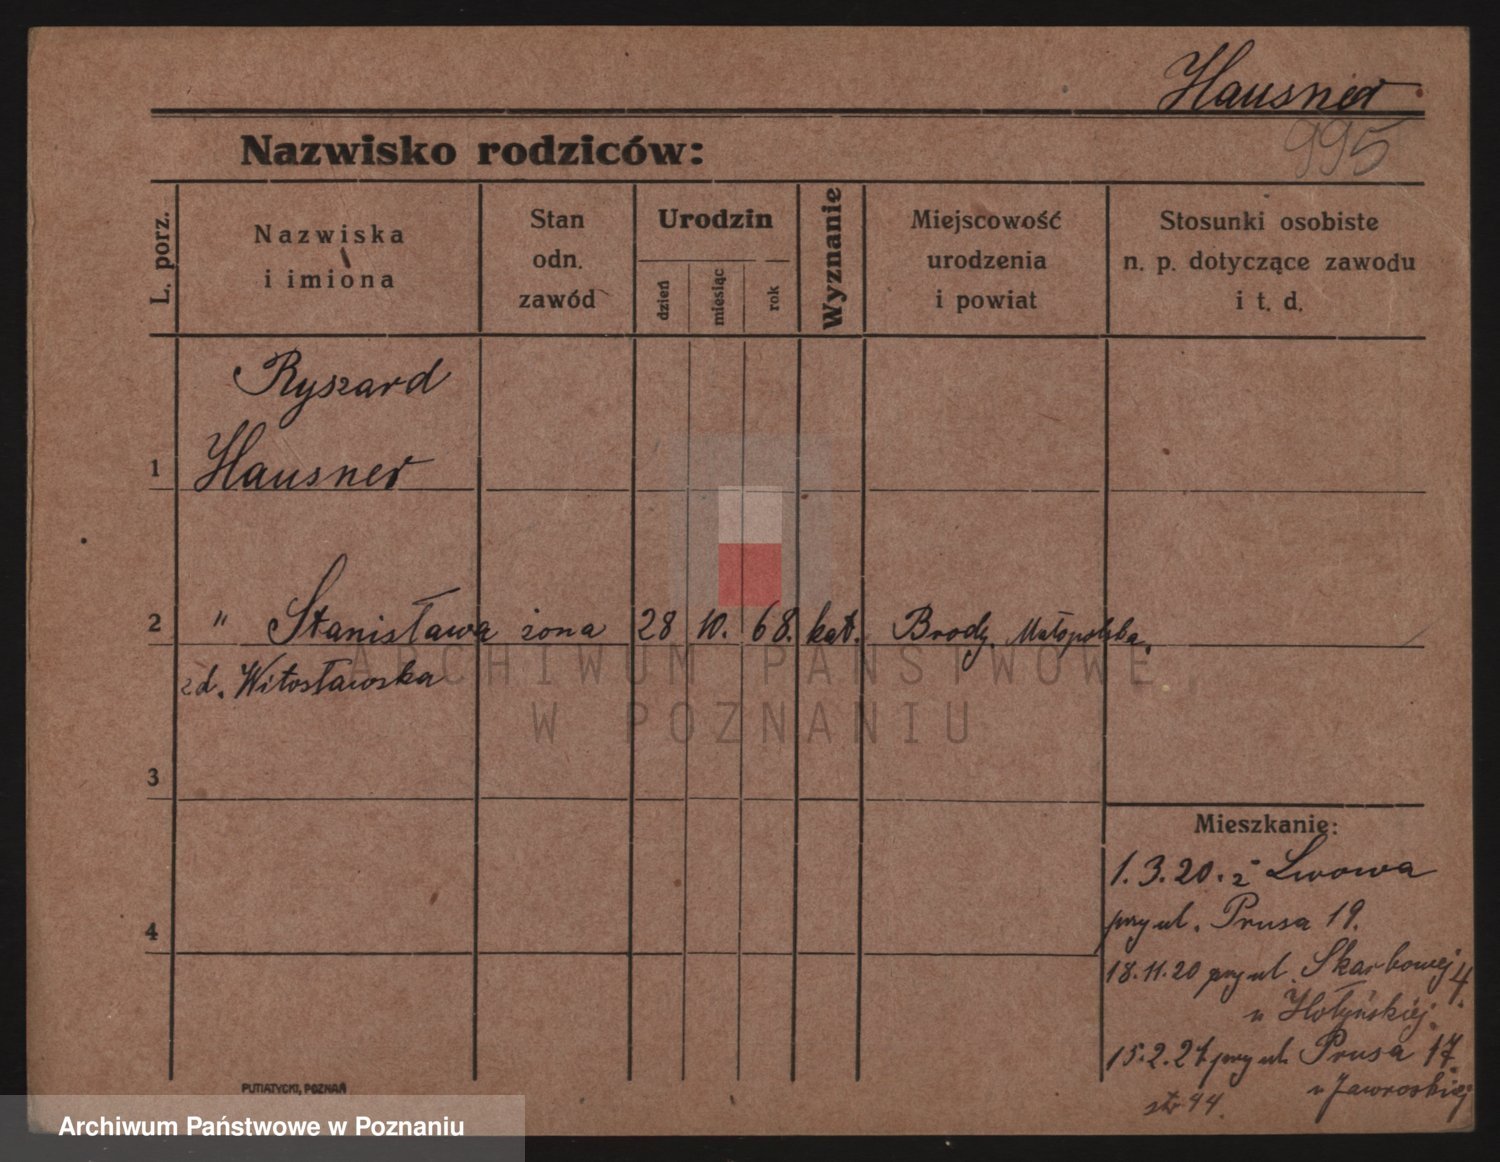 Hausner
995
Nazwisko rodziców:
L. porz.
Nazwiska
i imiona
Stan
odn.
zawód
Urodzin
dzień
miesiąc
rok
Wyznanie
Miejscowość
urodzenia
i powiat
Stosunki osobiste
n. p. dotyczące zawodu
i t. d.
Ryszard
1 Hausner
2 " Stanisława żona 28 10. 68. kat. Brody, Małopolska.
zd. Witosławska
ARCHIWUM PAŃSTWOWE
W POZNANIU
3
Mieszkanie:
1.3.20. z Lwowa
przy ul. Prusa 19.
4
18.11.20 przy ul. Skarbowej 4.
u Hołyńskiej.
15.2.21 przy ul. Prusa 17
u Jaworskiej
str 44.
PUTIATYCKI, POZNAŃ
Archiwum Państwowe w Poznaniu